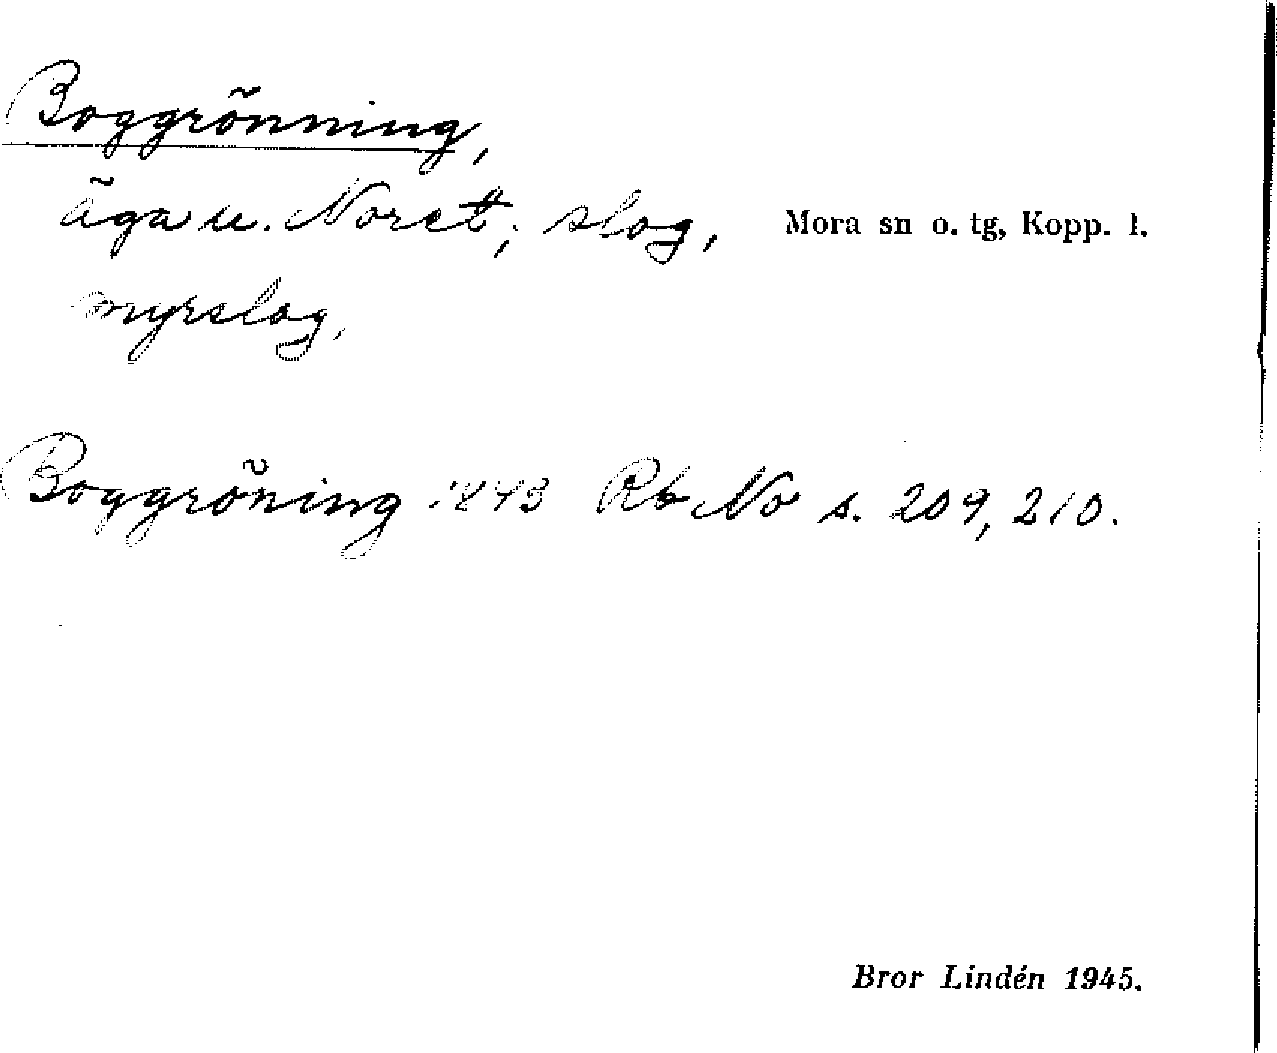 Boggrönning,
äga u. Noret; slog, Mora sn o. tg, Kopp. l.
myrslog,
Boggröning 1843 Rb No s. 209, 210.
Bror Lindén 1945.